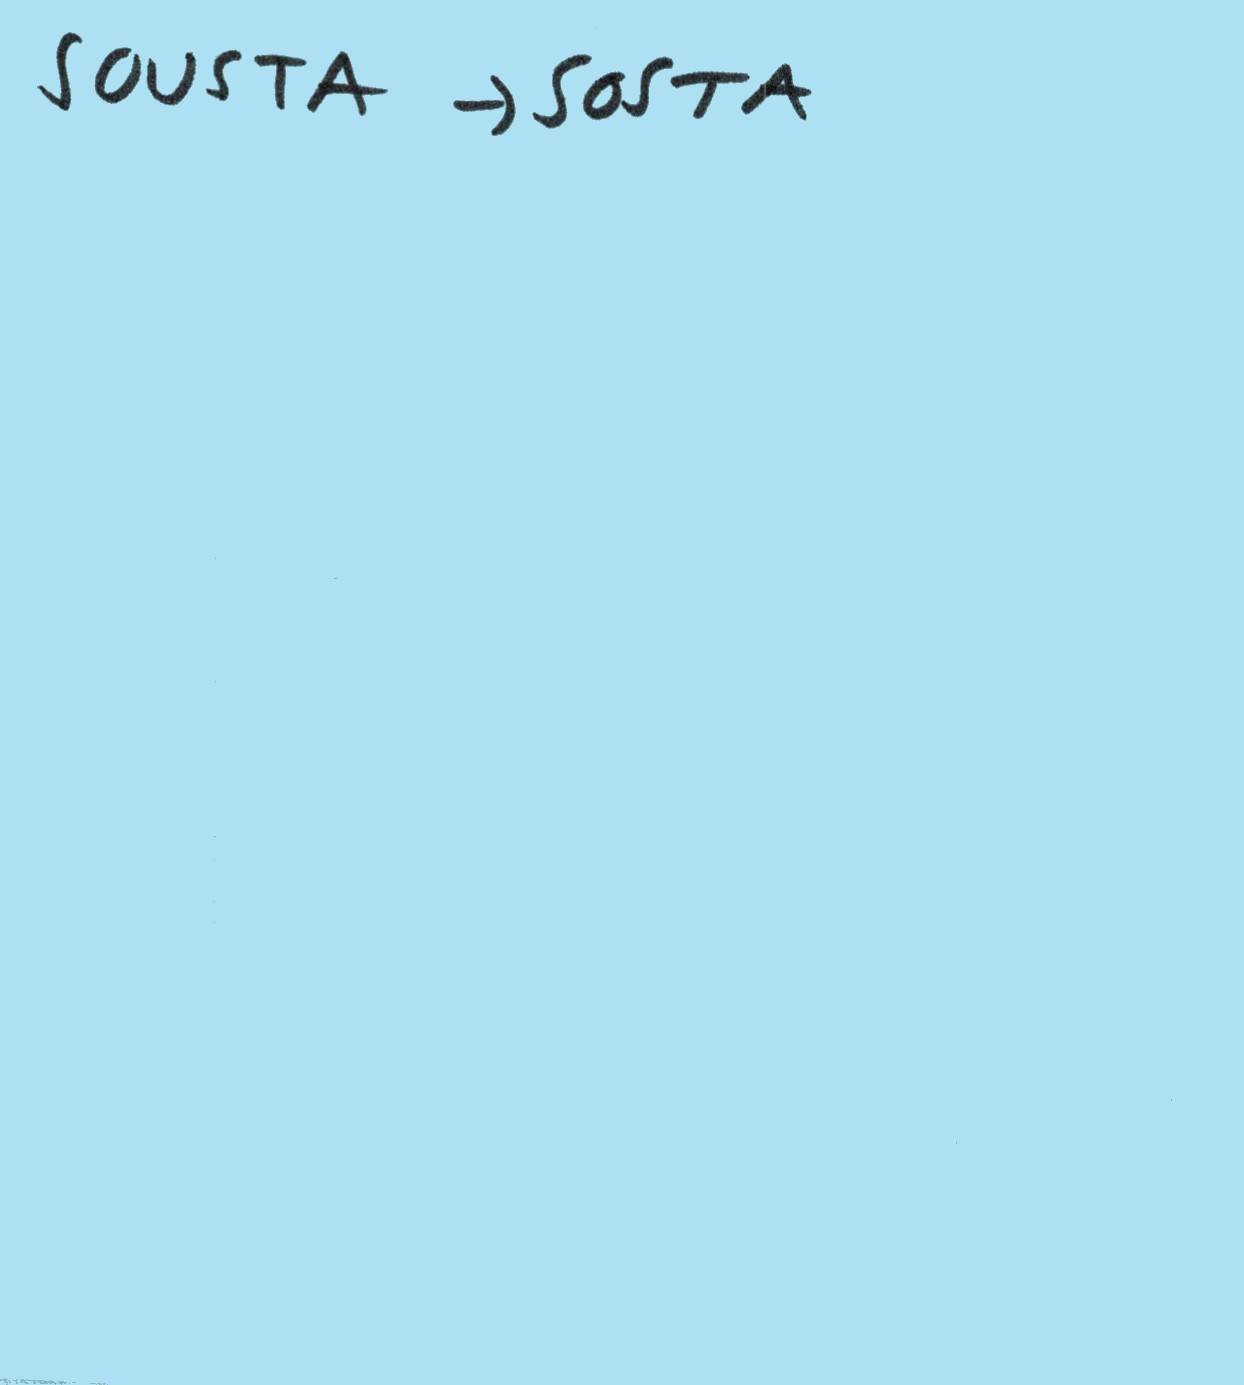 SOUSTA → SOSTA